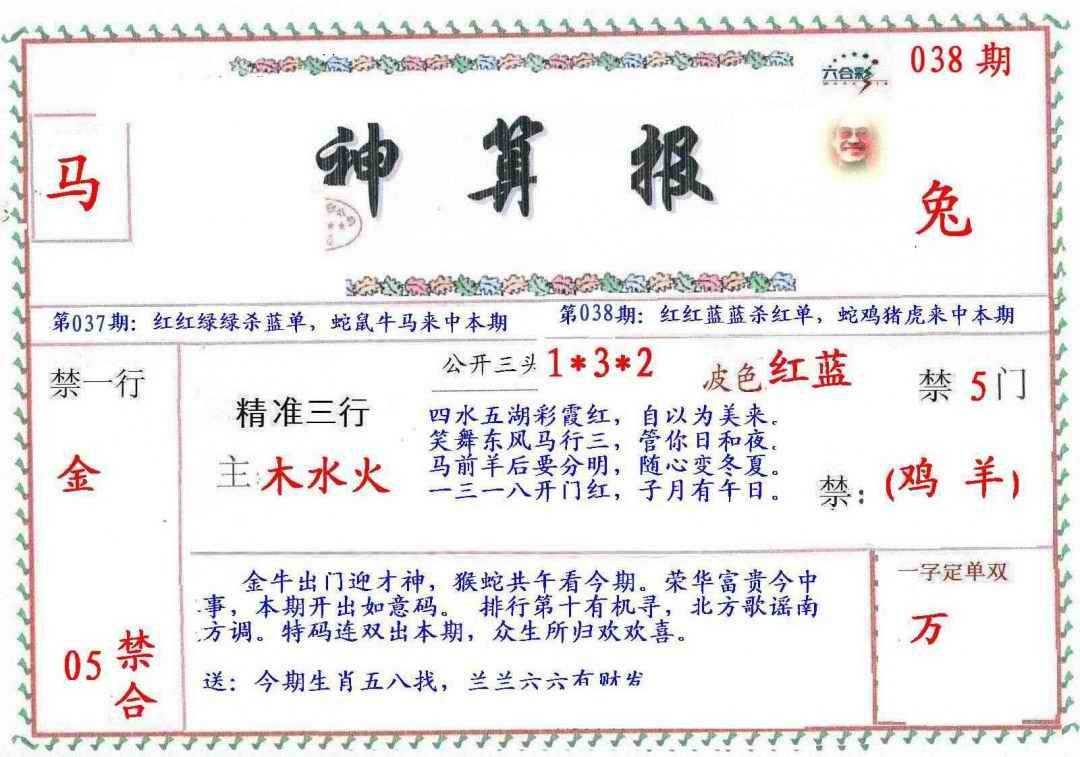 六合彩
038期
马
神算报
兔
第037期：红红绿绿杀蓝单，蛇鼠牛马来中本期
第038期：红红蓝蓝杀红单，蛇鸡猪虎来中本期
禁一行
金
05
禁
合
公开三头 1*3*2
波色 红蓝
禁 5 门
精准三行
主 木水火
四水五湖彩霞红，自以为美来。
笑舞东风马行三，管你日和夜。
马前羊后要分明，随心变冬夏。
一三一八开门红，子月有午日。
禁：(鸡 羊)
金牛出门迎才神，猴蛇共午看今期。荣华富贵今中
事，本期开出如意码。 排行第十有机寻，北方歌谣南
方调。特码连双出本期，众生所归欢欢喜。
送：今期生肖五八找，兰兰六六有财发
一字定单双
万